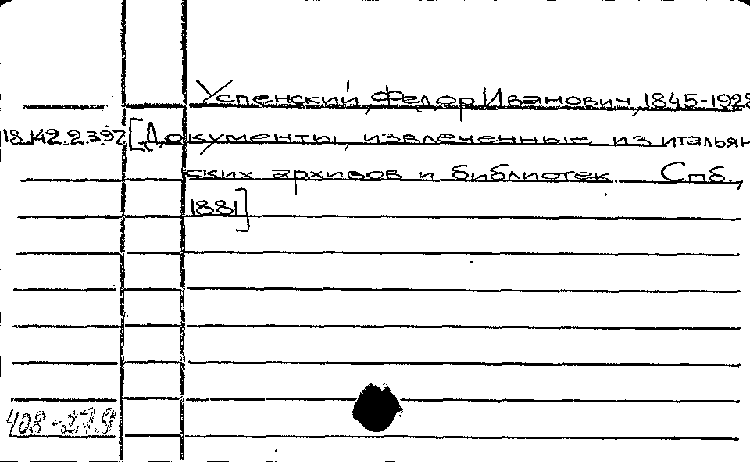 Успенский, Федор Иванович, 1845-1928
18.142.2.397 [Документы, извлеченные из итальян
ских архивов и библиотек. Спб.,
1881]
408-279